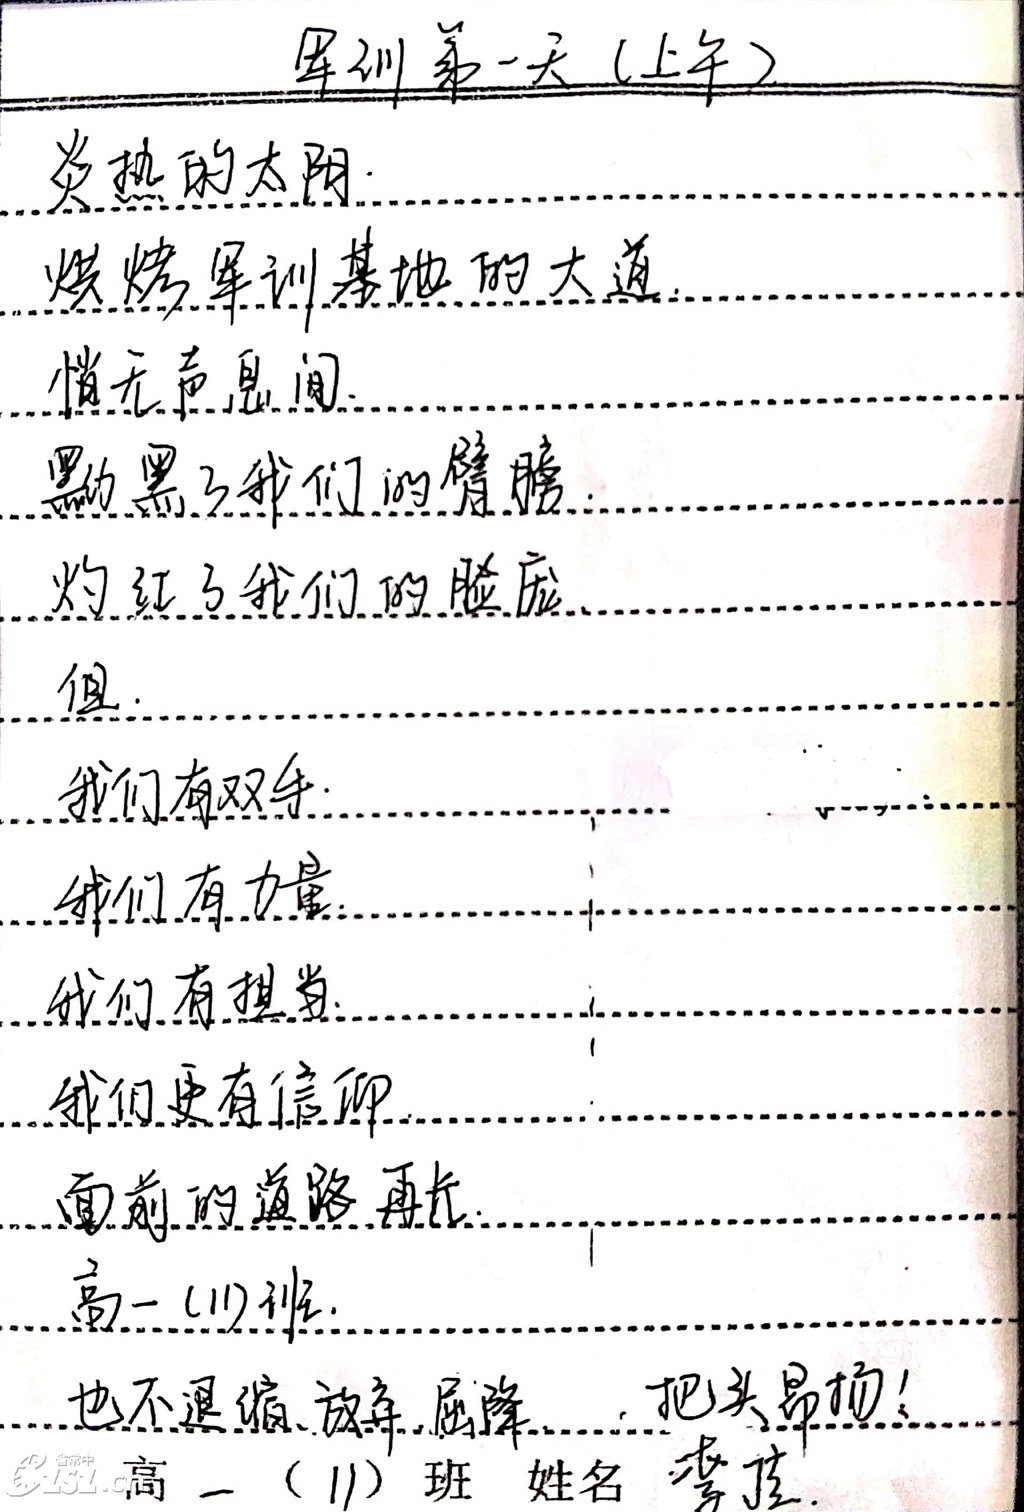 军训第一天(上午)
炎热的太阳.
烘烤军训基地的大道.
悄无声息间.
黝黑了我们的臂膀.
灼红了我们的脸庞.
但.
我们有双手.
我们有力量.
我们有担当.
我们更有信仰.
面前的道路再长.
高一(11)班.
也不退缩、放弃、屈降 . 把头昂扬!
高一(11)班 姓名
省常中